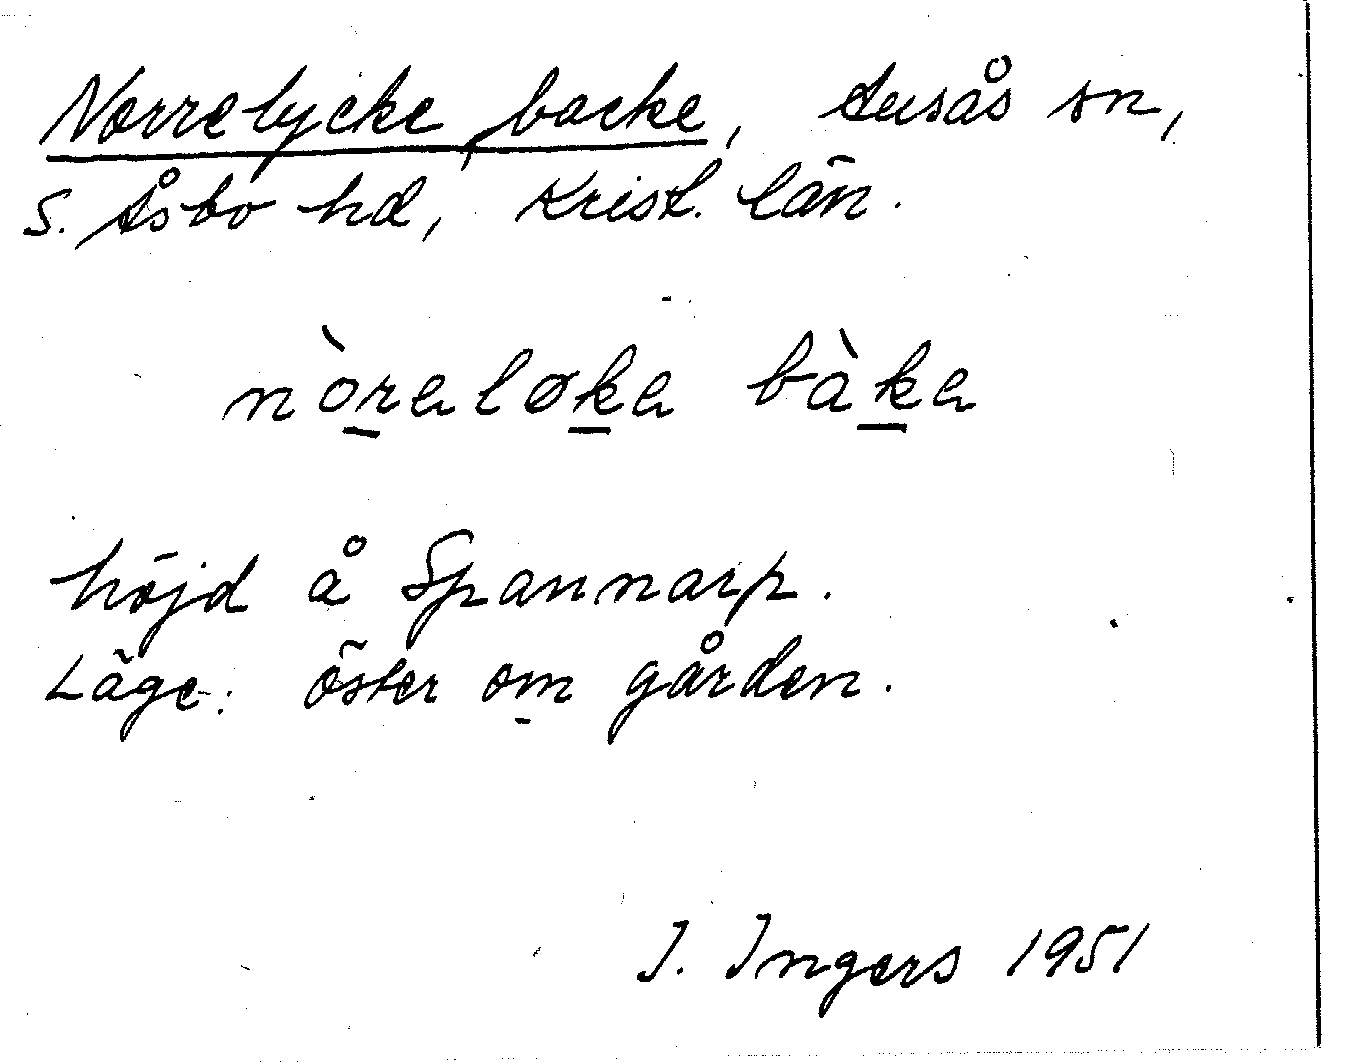 Norrelycke backe, Ausås sn,
S. Åsbo hd, Krist. län.
nòreløke bàke
höjd å Spannarp.
Läge: öster om gården.
I. Ingers 1951